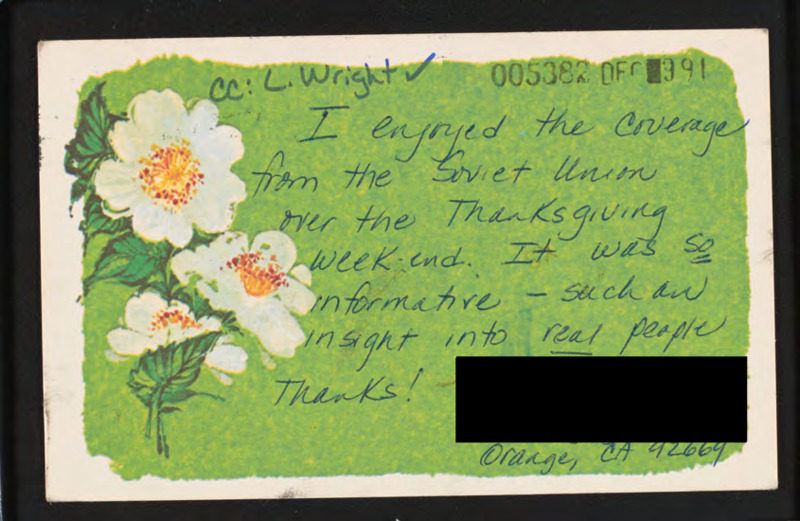 cc: L. Wright ✓
005382 DEC 91
I enjoyed the coverage
from the Soviet Union
over the Thanksgiving
week-end. It was so
informative - such an
insight into real people
Thanks!
Orange, CA 92669